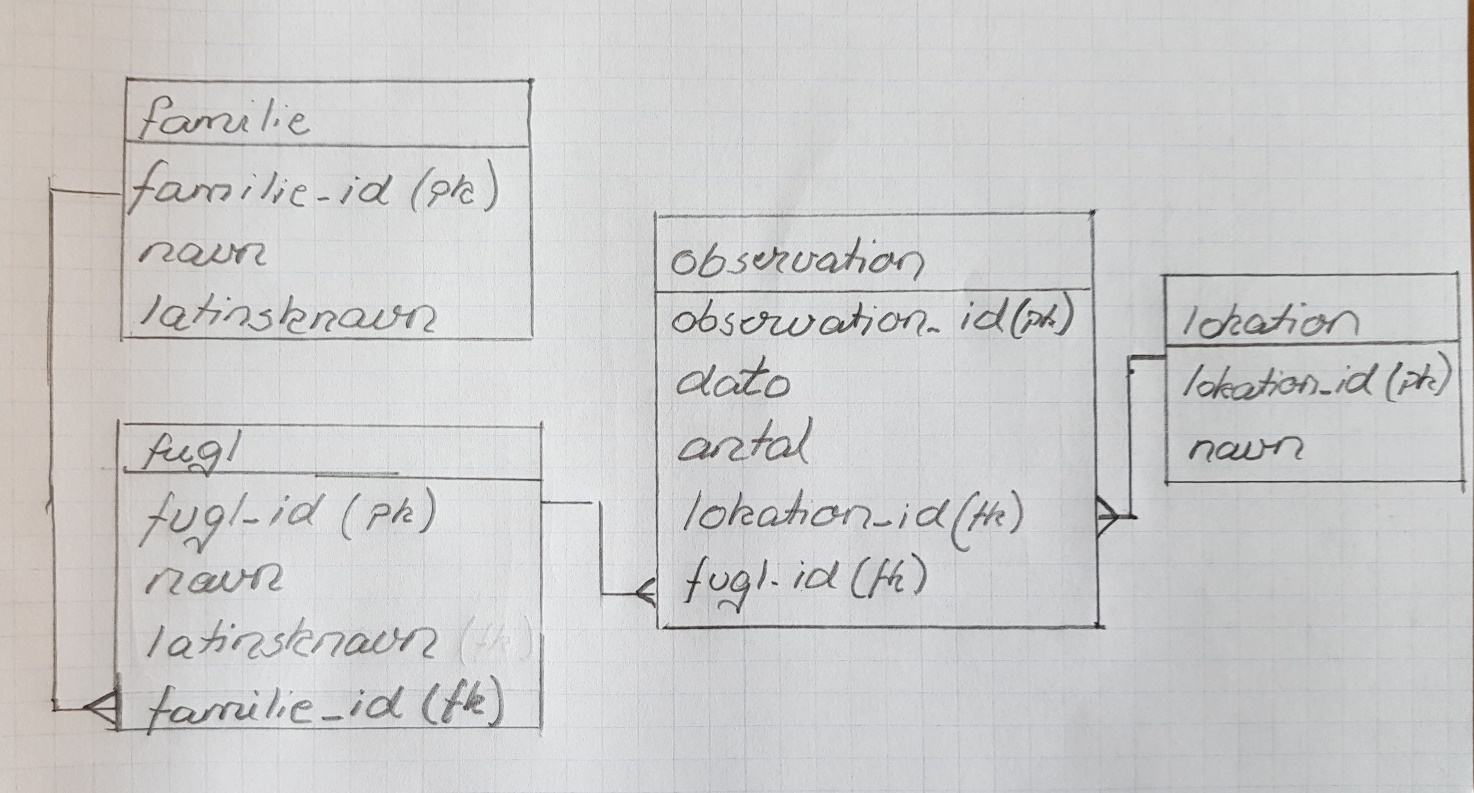 familie
familie_id (pk)
navn
latinsknavn
fugl
fugl_id (pk)
navn
latinsknavn (fk)
familie_id (fk)
observation
observation_id (pk)
dato
antal
lokation_id (fk)
fugl_id (fk)
lokation
lokation_id (pk)
navn